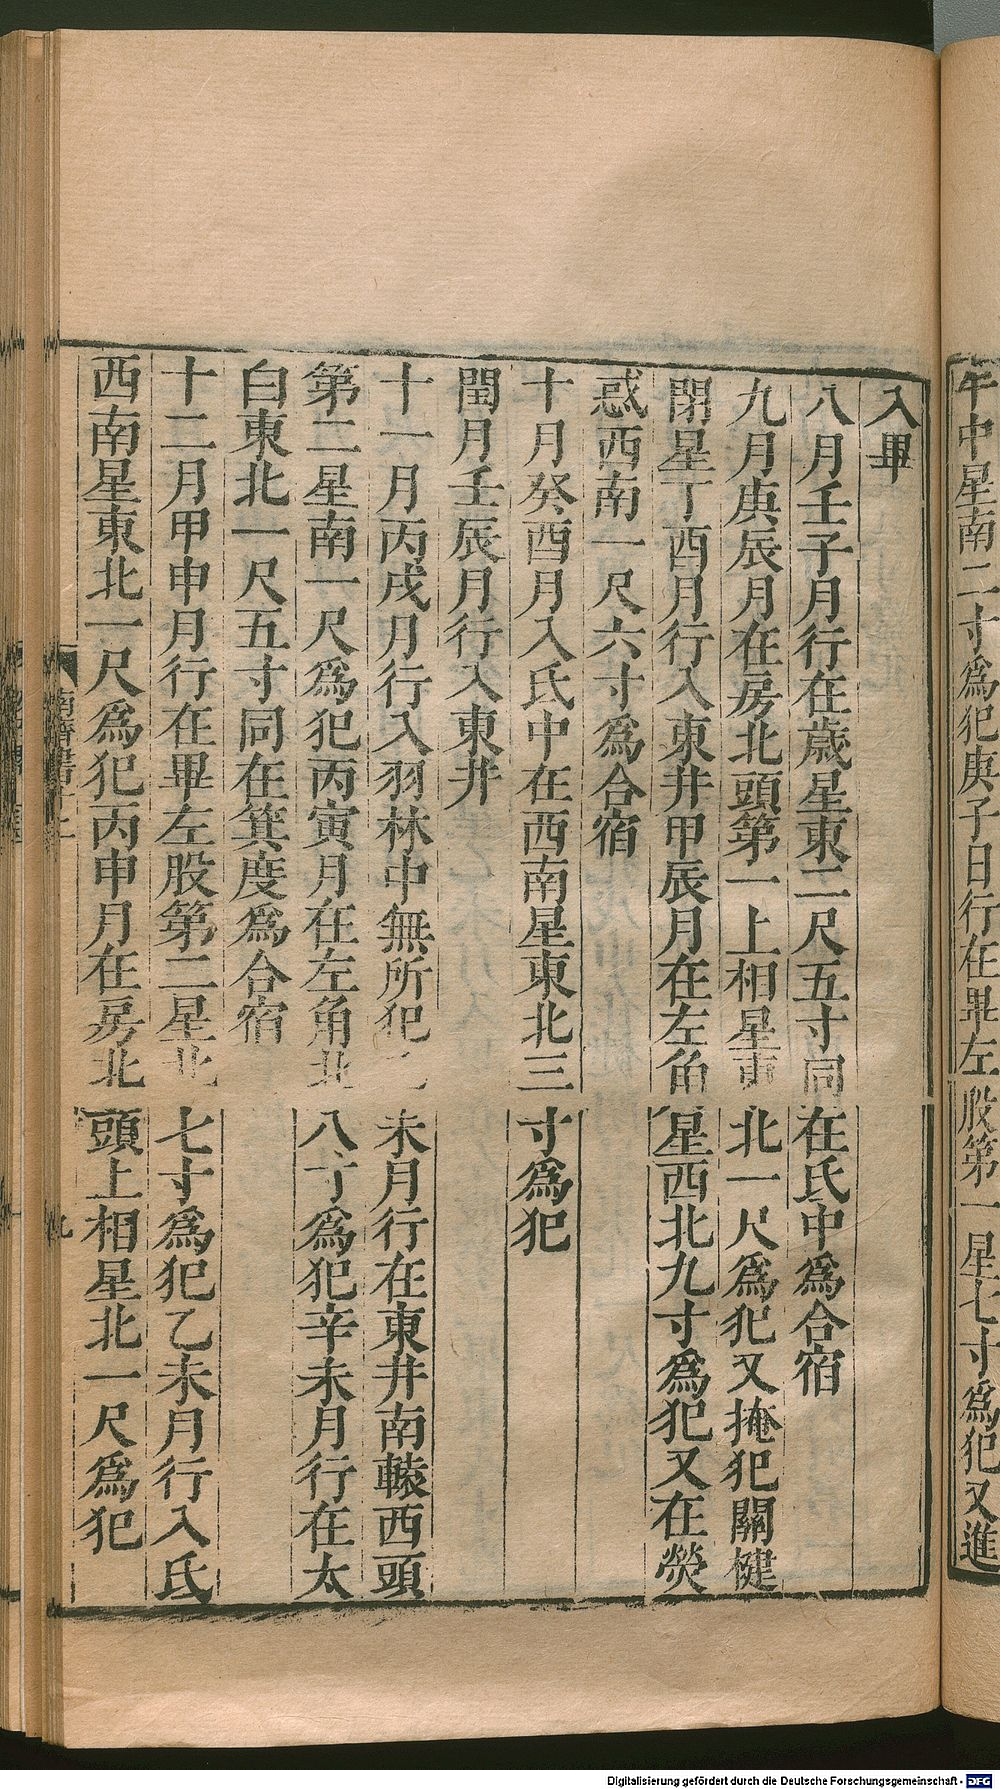 午中星南二寸爲犯庚子日行在畢左股第一星七寸爲犯又進
入畢
八月壬子月行在歲星東二尺五寸同在氐中爲合宿
九月庚辰月在房北頭第一上相星東北一尺爲犯又掩犯關楗
閉星丁酉月行入東井甲辰月在左角星西北九寸爲犯又在熒
惑西南一尺六寸爲合宿
十月癸酉月入氐中在西南星東北三寸爲犯
閏月壬辰月行入東井
十一月丙戌月行入羽林中無所犯乙未月行在東井南轅西頭
第二星南一尺爲犯丙寅月在左角北八寸爲犯辛未月行在太
白東北一尺五寸同在箕度爲合宿
十二月甲申月行在畢左股第二星北七寸爲犯乙未月行入氐
西南星東北一尺爲犯丙申月在房北頭上相星北一尺爲犯
南齊書十二
九
Digitalisierung gefördert durch die Deutsche Forschungsgemeinschaft - DFG